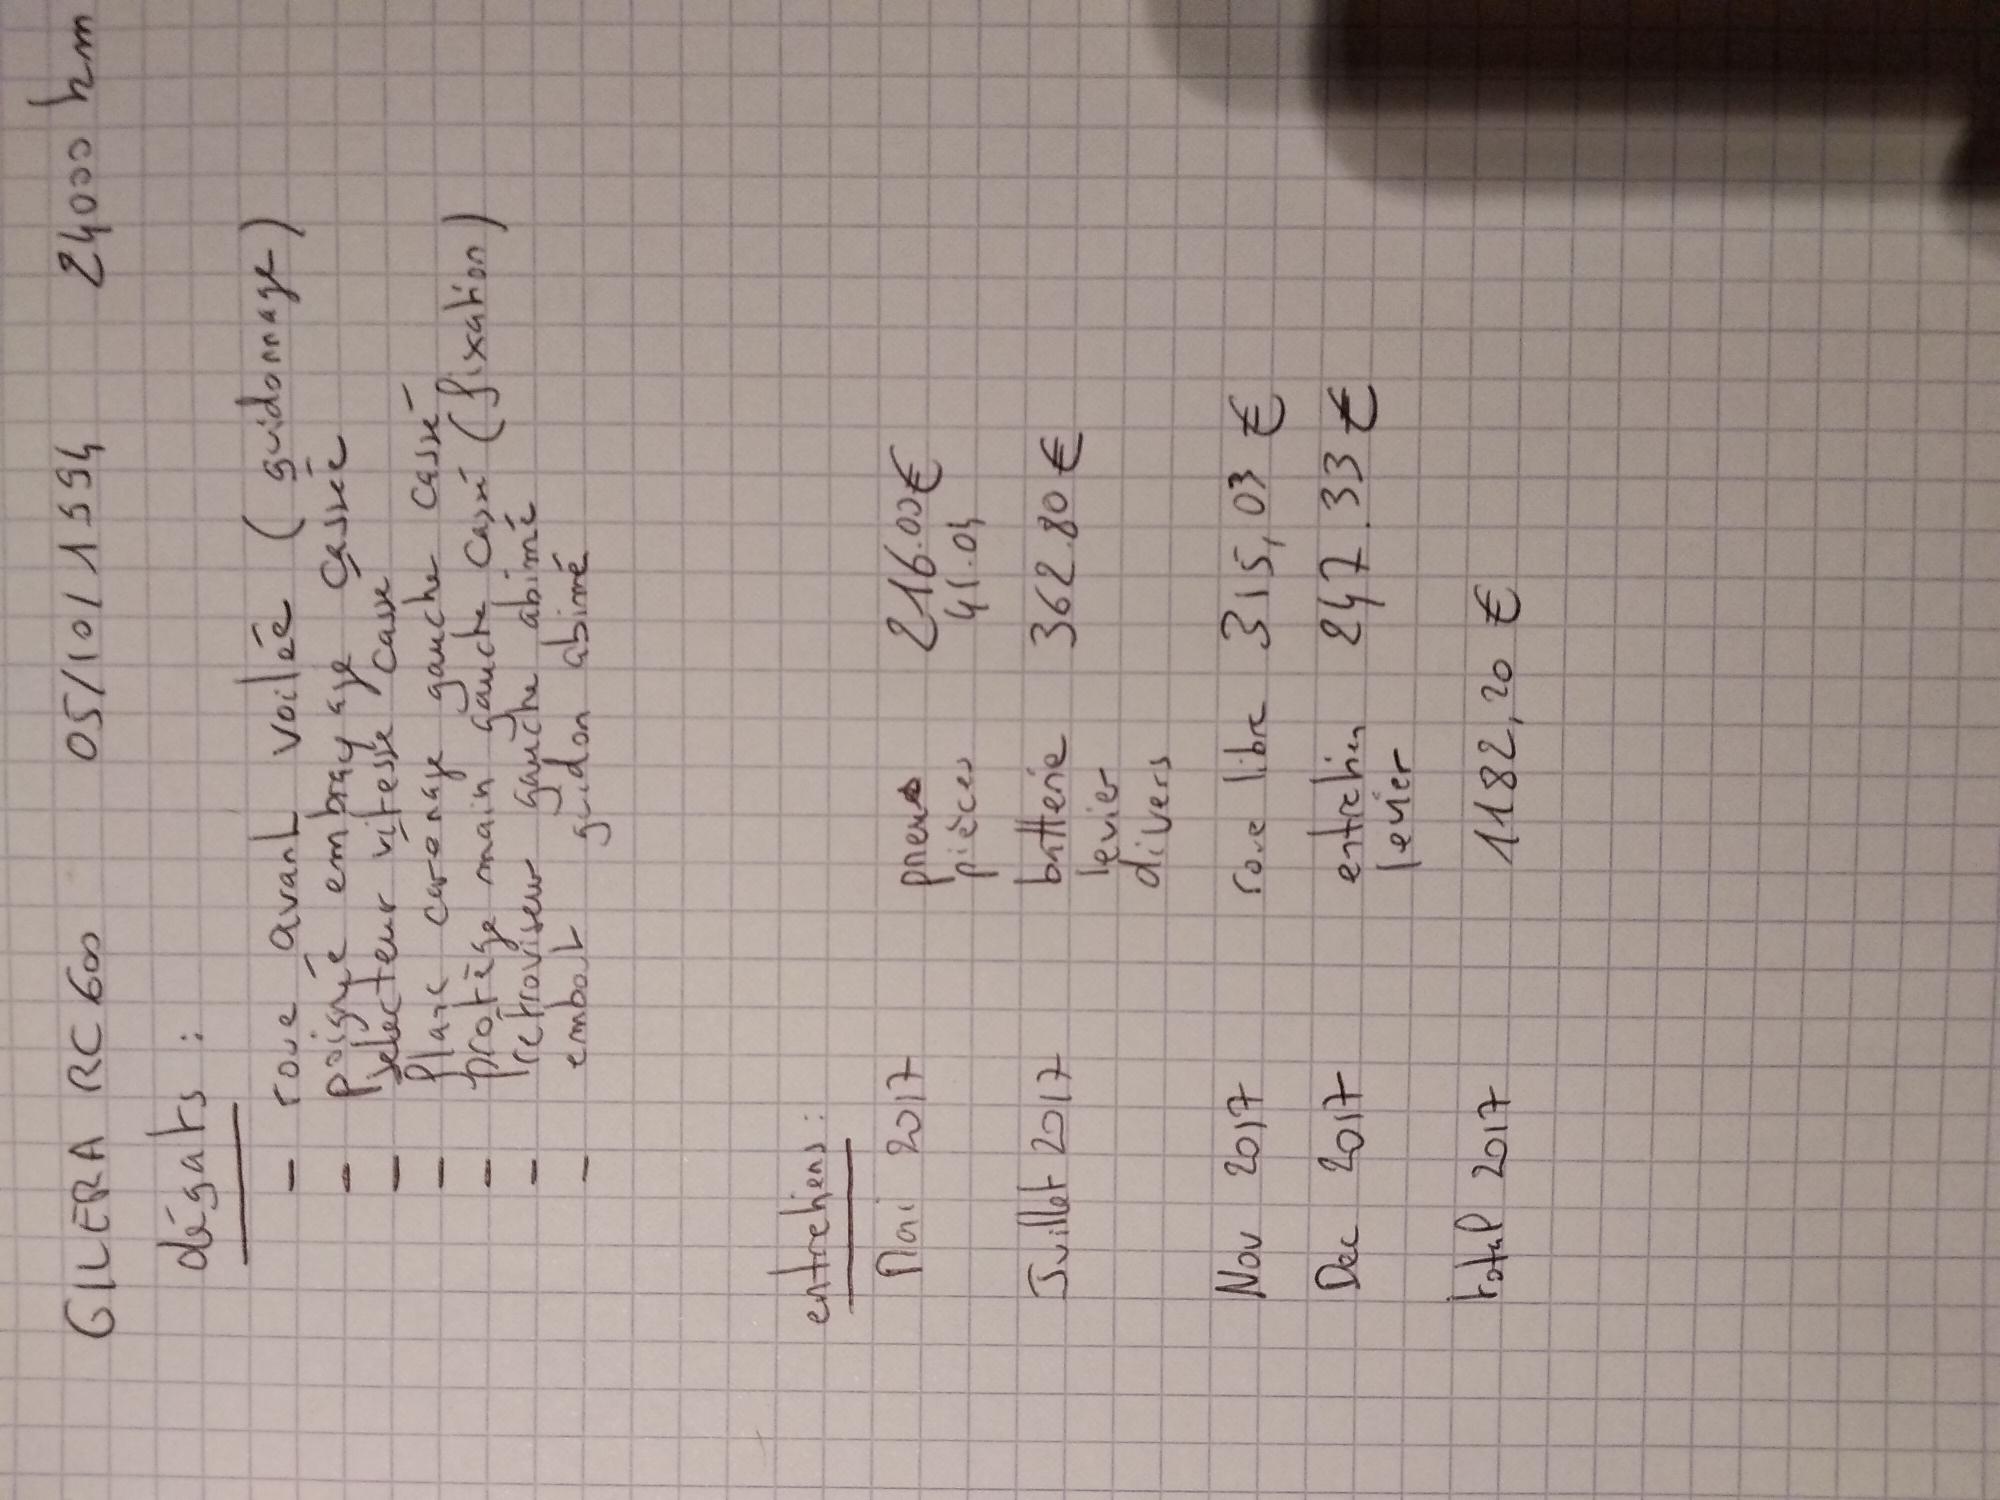 GILERA RC 600 05/10/1994 24000 km
dégats :
- roue avant voilée (guidonnage)
- poignée embrayage cassée
- selecteur vitesse cassé
- flanc carénage gauche cassé
- protège main gauche cassé (fixation)
- retroviseur gauche abimé
- embout guidon abimé
entretiens :
Mai 2017 pneus 216.00 €
pièces 41.04
Juillet 2017 batterie 362.80 €
levier
divers
Nov 2017 roue libre 315,03 €
Dec 2017 entretien 247.33 €
levier
total 2017 1182,20 €